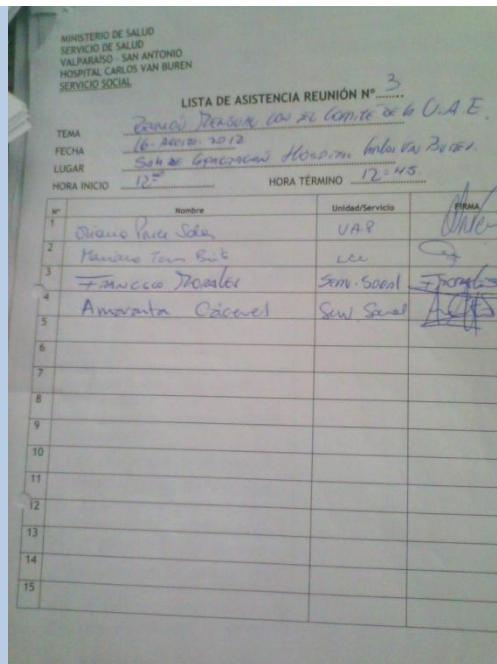 MINISTERIO DE SALUD
SERVICIO DE SALUD
VALPARAÍSO - SAN ANTONIO
HOSPITAL CARLOS VAN BUREN
SERVICIO SOCIAL
LISTA DE ASISTENCIA REUNIÓN N° 3
TEMA Reunión Mensual con el Comité de la U.A.E.
FECHA 16- Agosto- 2012
LUGAR Sala de Capacitación Hospital Carlos Van Buren.
HORA INICIO 12:00 HORA TÉRMINO 12:45.
N° Nombre Unidad/Servicio FIRMA
1 Ponce UAP
2 Mariano
3 Francisco Morales Serv. Social
4 Amaranta Cáceres Serv. Social
5
6
7
8
9
10
11
12
13
14
15